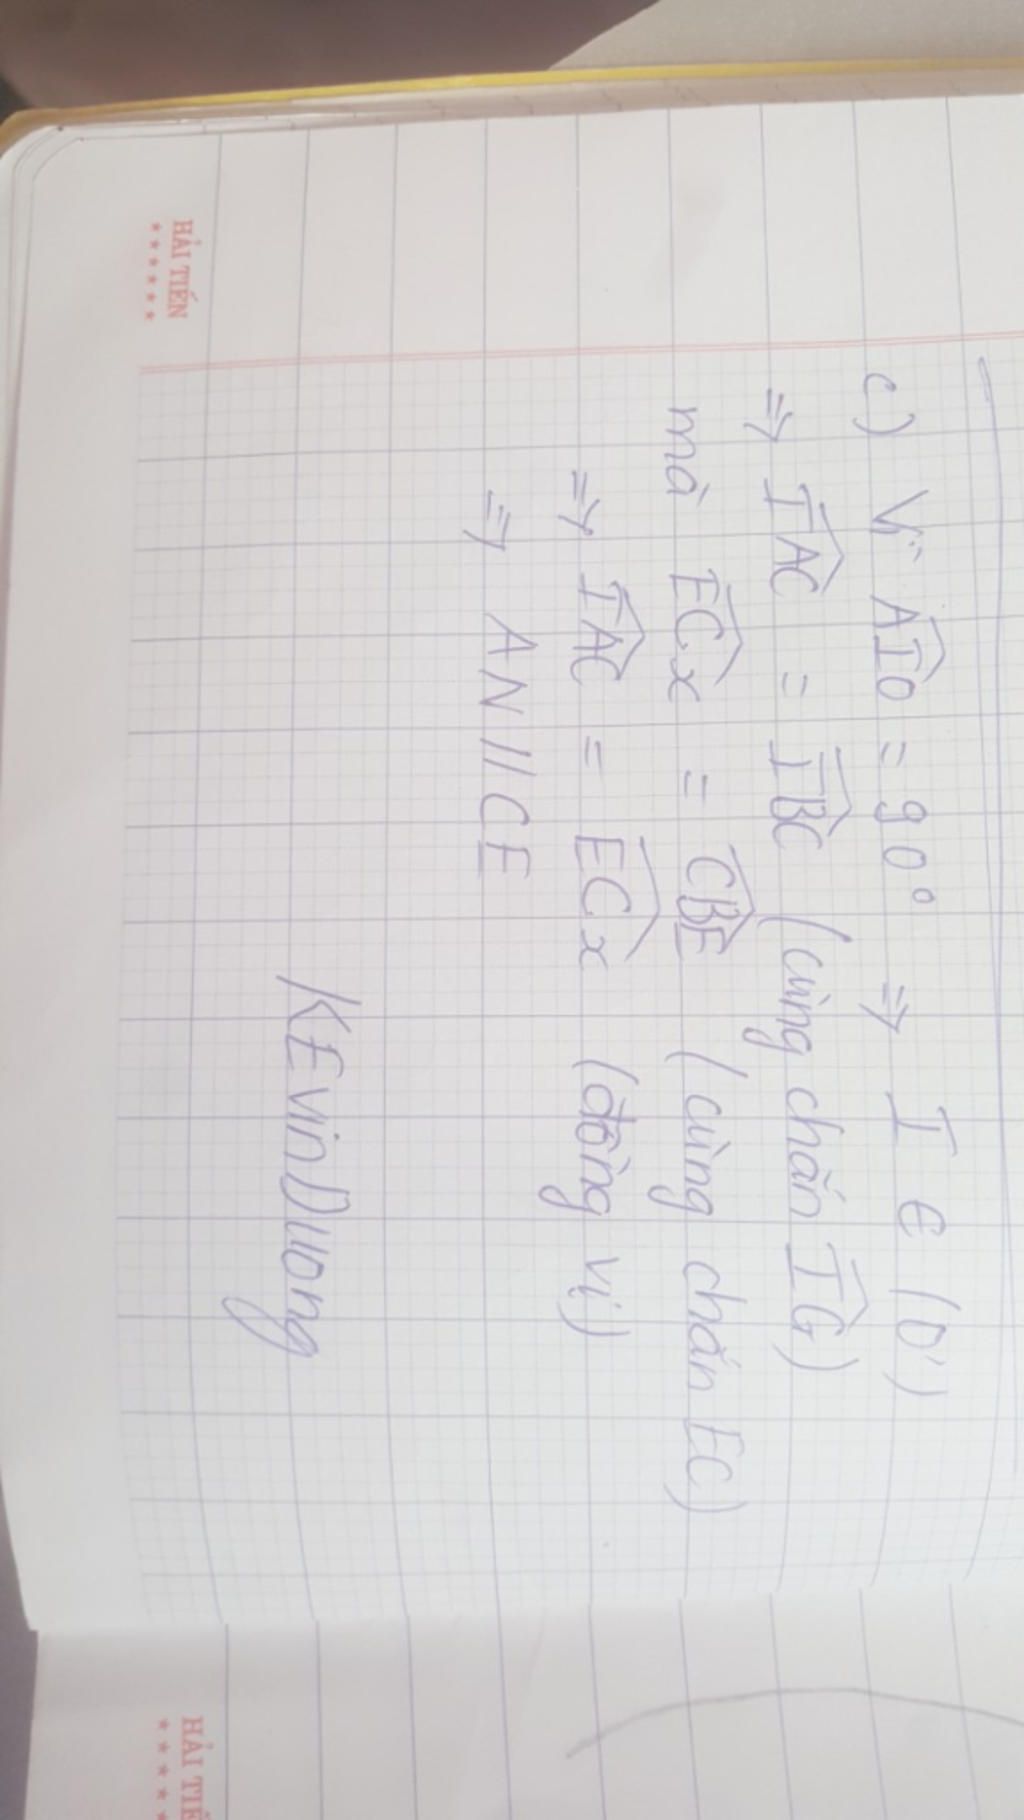 c) Vì AIO = 90° => I ∈ (O')
=> IAC = IBC (cùng chắn IG)
mà ECx = CBE (cùng chắn EC)
=> IAC = ECx (đồng vị)
=> AN // CE
KEvinDuong
HẢI TIẾN
★★★★★★
HẢI TIẾ
★★★★★